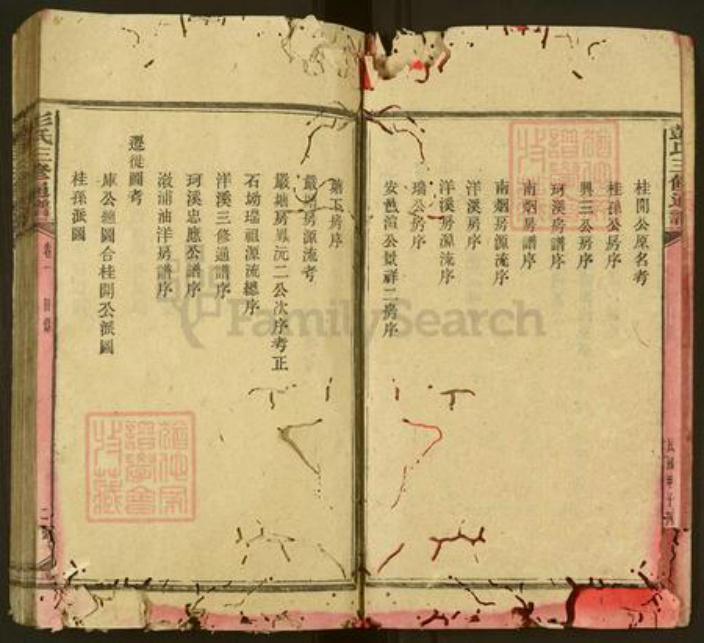 桂開公原名考
桂孫公房序
興三公房序
珂溪房譜序
南烟房譜序
南烟房源流序
洋溪房序
洋溪房源流序
瑞公房序
安邑渲公景祥二房序
房序
房源流考
嚴塘房沅二公次序考正
石坳瑞祖源流總序
洋溪三修通譜序
珂溪忠應公譜序
溆浦油洋房譜序
遷徙圖考
庫公總圖合桂開公派圖
桂孫派圖
彭氏三修通譜
卷一
二
FamilySearch